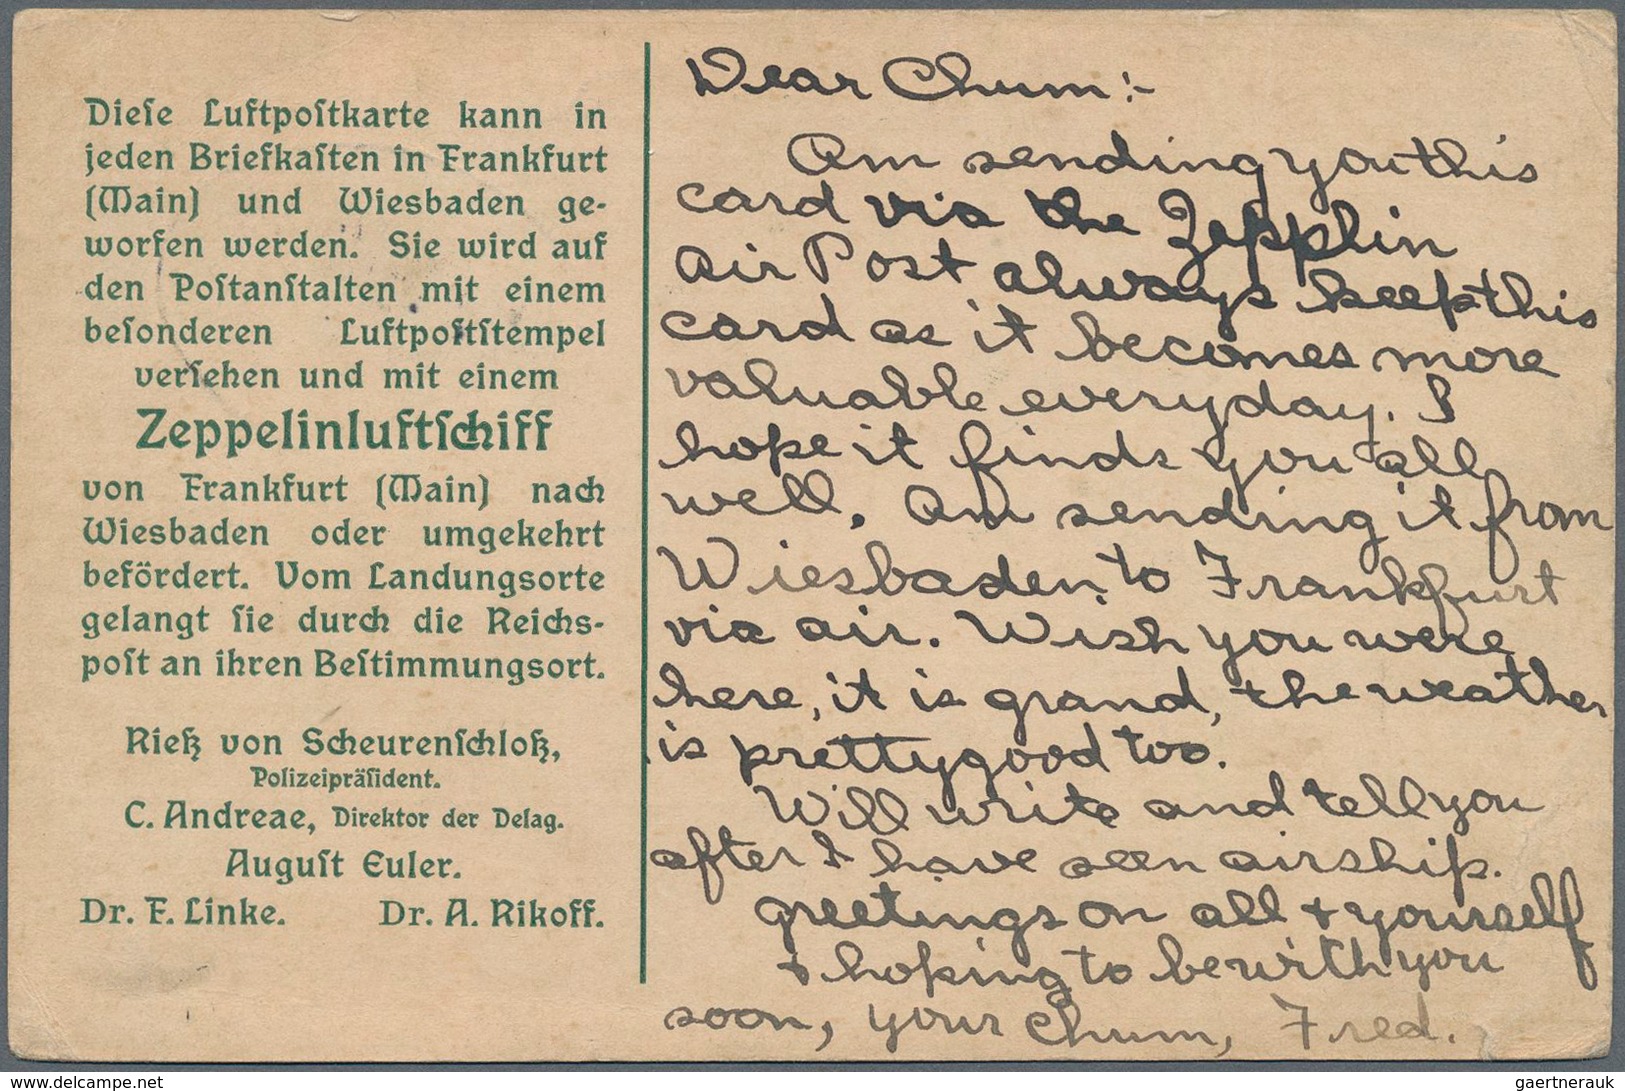 Dieſe Luftpoſtkarte kann in
jeden Briefkaſten in Frankfurt
(Main) und Wiesbaden ge-
worfen werden. Sie wird auf
den Poſtanſtalten mit einem
beſonderen Luftpoſtſtempel
verſehen und mit einem
Zeppelinluftſchiff
von Frankfurt (Main) nach
Wiesbaden oder umgekehrt
befördert. Vom Landungsorte
gelangt ſie durch die Reichs-
poſt an ihren Beſtimmungsort.
Rieß von Scheurenſchloß,
Polizeipräſident.
C. Andreae, Direktor der Delag.
Auguſt Euler.
Dr. F. Linke. Dr. A. Rikoff.
Dear Chum:-
Am sending you this
card via the Zepplin
Air Post always keep this
card as it becomes more
valuable everyday. I
hope it finds you all
well. Am sending it from
Wiesbaden to Frankfurt
via air. Wish you were
here, it is grand, the weather
is pretty good too.
Will write and tell you
after I have seen airship.
greetings on all + yourself
+ hoping to be with you
soon, your Chum, Fred.
www.delcampe.net
gaertnerauk